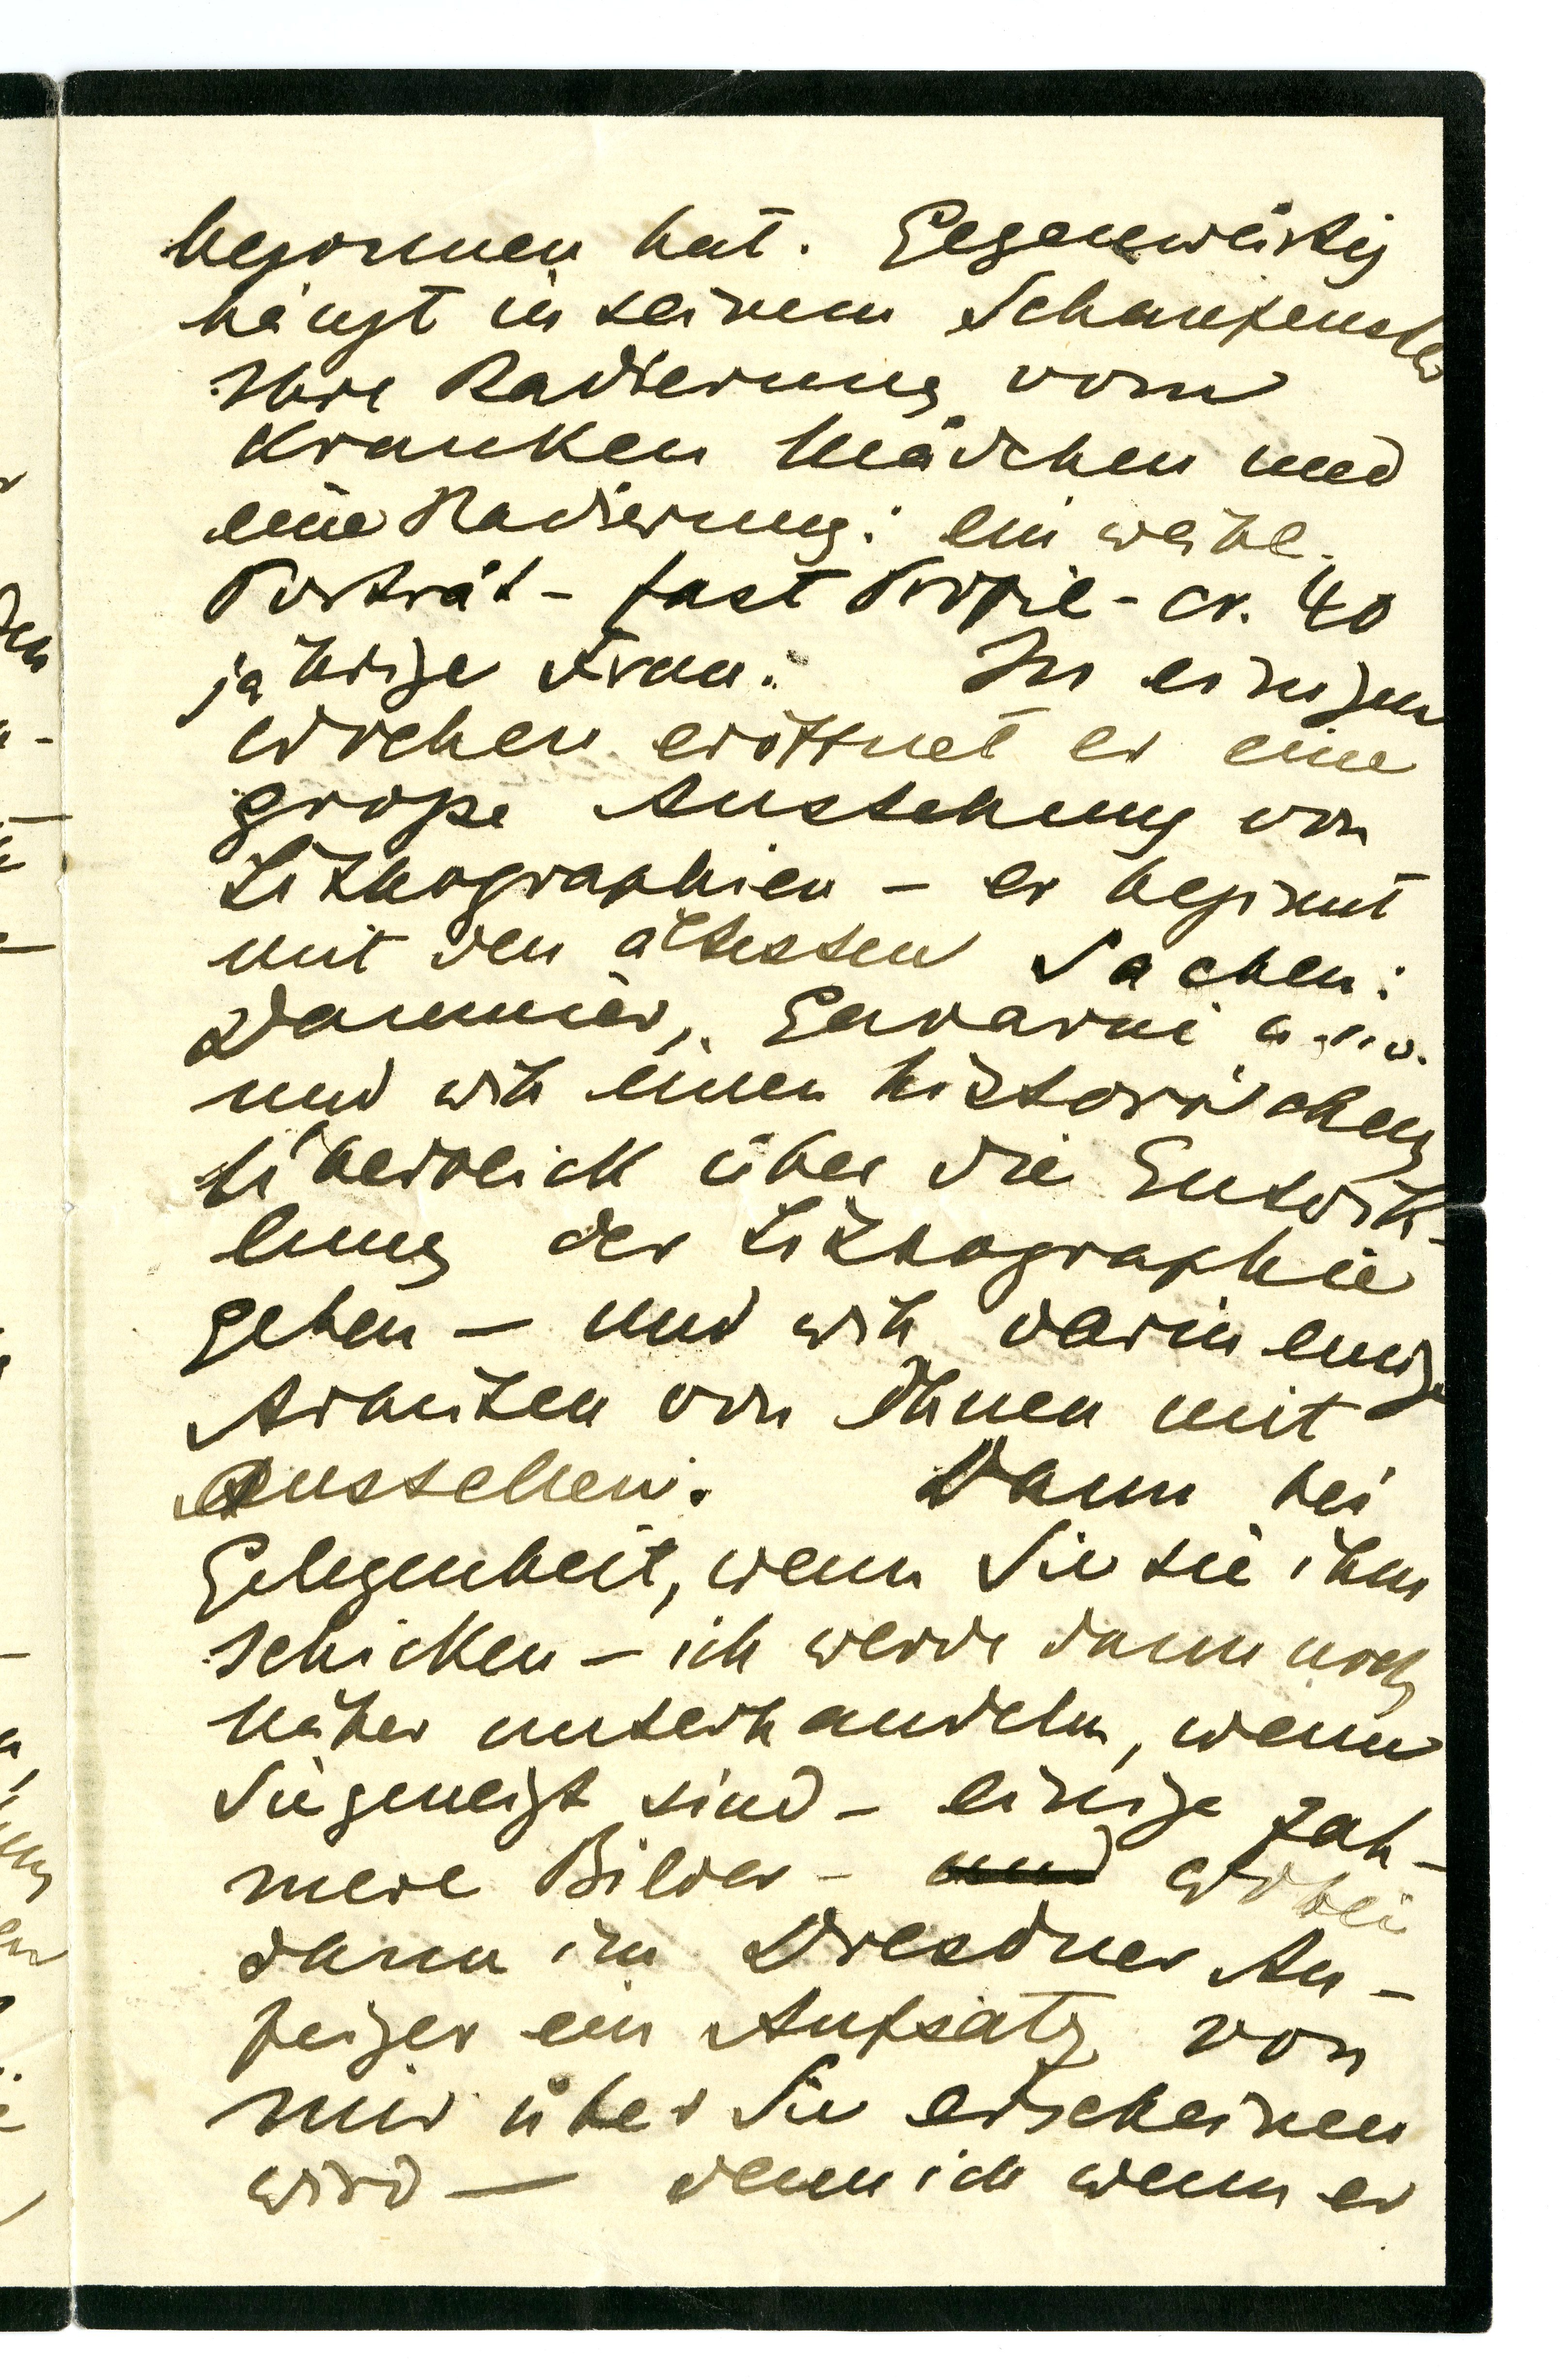 begonnen hat. Gegenwärtig
hängt in seinem Schaufenster
Ihre Radierung vom
Kranken Mädchen und
eine Radierung: ein weibl.
Porträt - fast Profil - cr. 40
jährige Frau. In einigen
Wochen eröffnet er eine
große Ausstellung von
Lithographien - er beginnt
mit den ältesten Sachen:
Daumier, Gavarni
und will einen historischen
Überblick über die Entwick-
lung der Lithographie
geben - und will darin einige
Arbeiten von Ihnen mit
ausstellen. Dann bei
Gelegenheit, wenn Sie sie ihm
schicken - ich werde dann noch
näher unterhandeln, wenn
Sie geneigt sind - einige zah-
mere Bilder - und wobei
dann im Dresdner An-
zeiger ein Aufsatz von
mir über Sie erscheinen
wird - denn ich wenn er